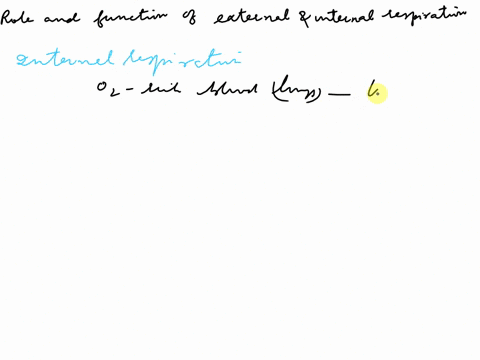 Role and function of external & internal respiration
Internal respiration
O2 - rich blood (lungs) —